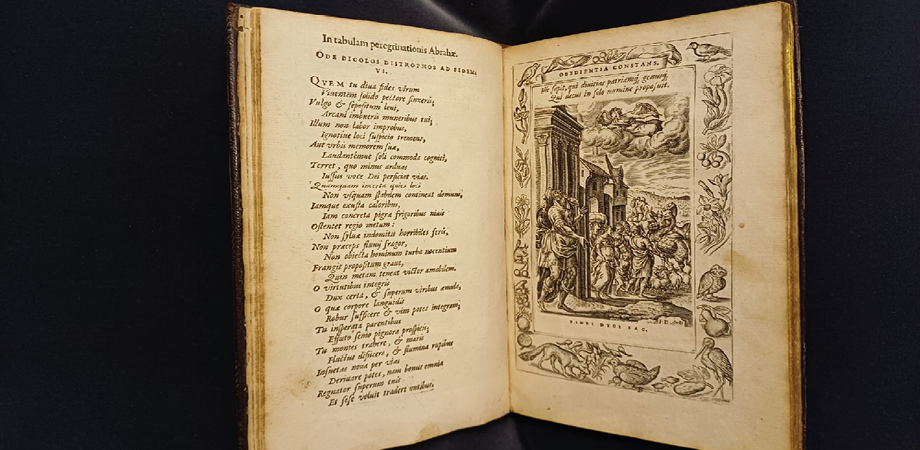 In tabulam peregrinationis Abrahæ.
ODE DICOLOS DISTROPHOS AD FIDEM;
VI.
QVEM tu diua fides virum
Viuentem solido pectore finxeris;
Vulgo & sepositum leui,
Arcani imbueris muneribus tui;
Illum non labor improbus,
Ignotiue loci suspicio tremens,
Aut vrbis memorem suæ,
Laudantémue soli commoda cogniti,
Terret, quo minus arduas
Iussus voce Dei perficiat vias.
Quamquam incerta quies loci
Non vsquam stabilem contineat domum;
Iamque exusta caloribus,
Iam concreta pigris frigoribus niuis
Ostentet regio metum:
Non syluæ indomitis horribiles feris,
Non præceps fluuij fragor,
Non obiecta hominum turba nocentium
Frangit propositum graue,
Quin metam teneat victor amabilem.
O virtutibus integris
Dux certa, & superum viribus æmula,
O quæ corpore languidis
Robur sufficere & vim potes integram;
Tu insperata parentibus
Effuto senio pignora prospicis;
Tu montes trahere, & maris
Fluctus dijicere, & flumina rupibus
Insuetas noua per vias
Deriuare potes, nam bonus omnia
Regnator superum tuis
Et sese voluit tradere vocibus.
OBEDIENTIA CONSTANS.
Ille sapit, qui diuitias patriamq; genusq;
Qui ducit in solo numine propositi.